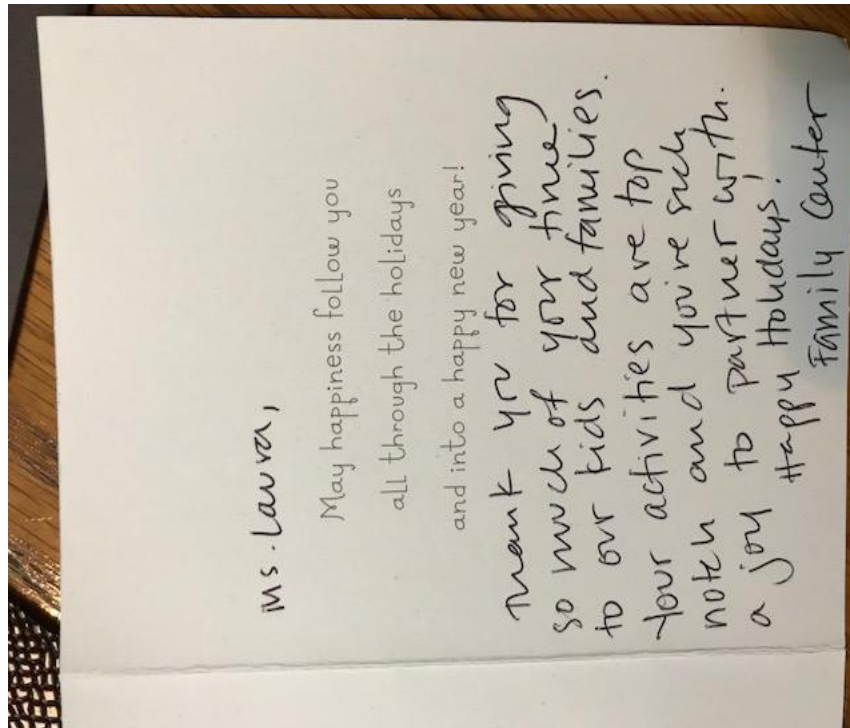 Ms. Laura,
May happiness follow you
all through the holidays
and into a happy new year!
Thank you for giving
so much of your time
to our kids and families.
Your activities are top
notch and you're such
a joy to partner with.
Happy Holidays!
Family Center